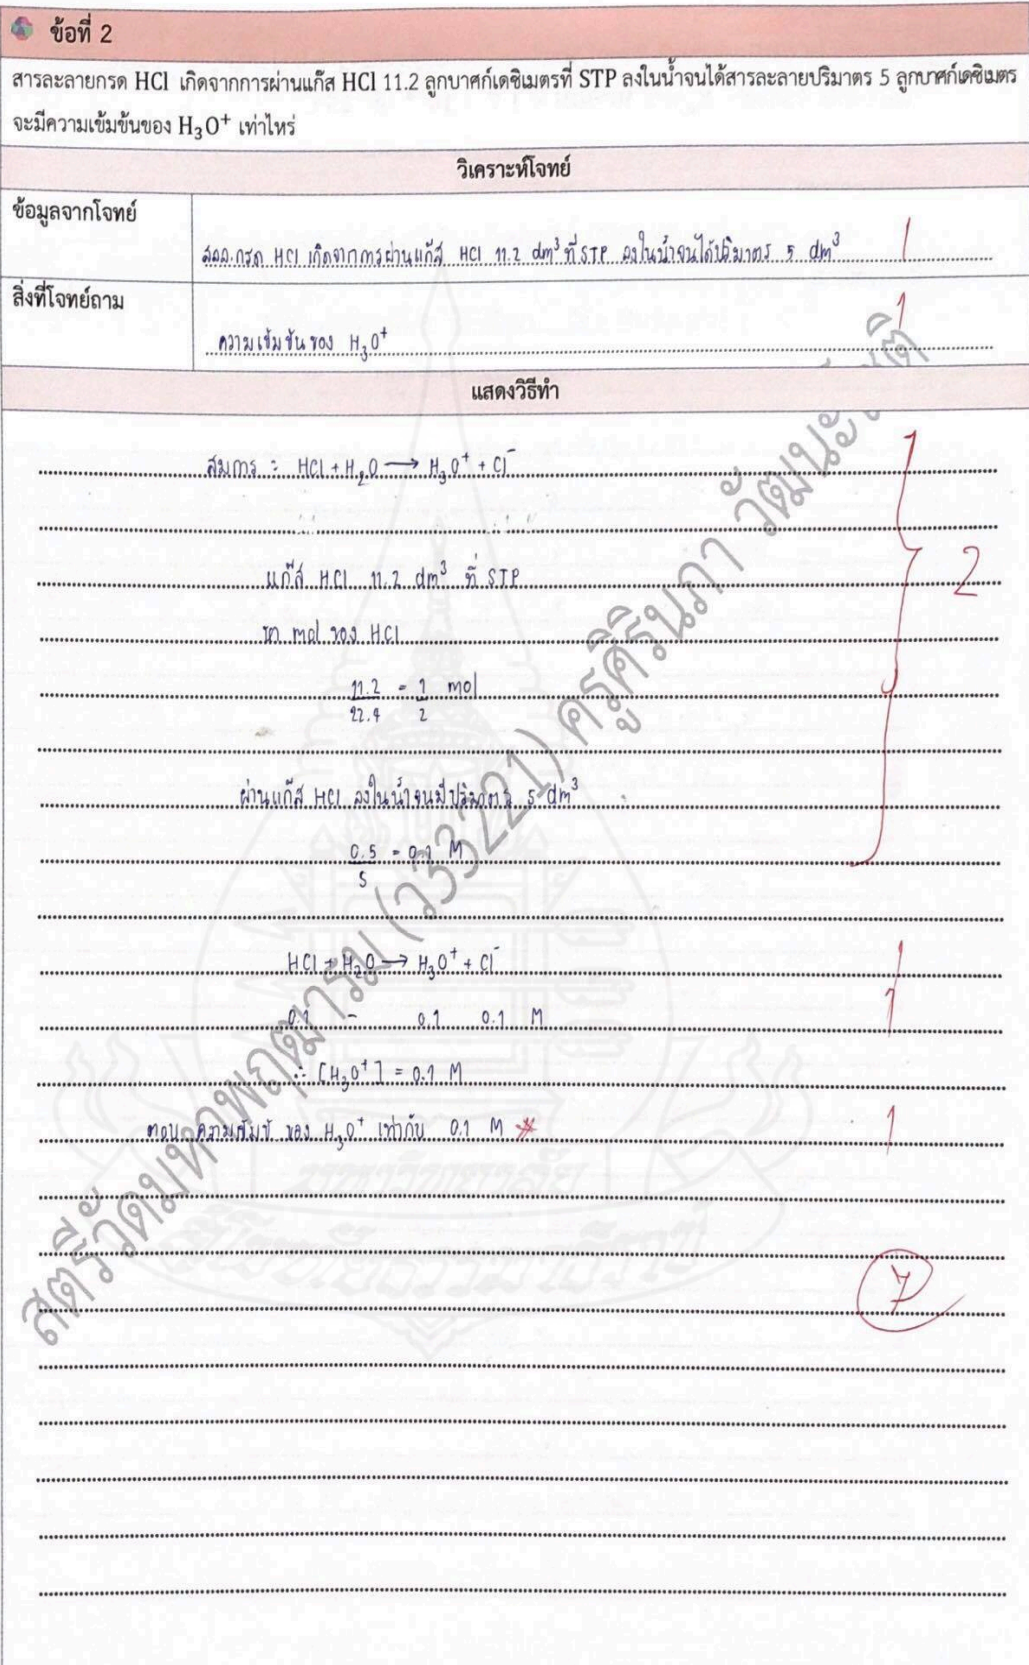 ข้อที่ 2
สารละลายกรด HCl เกิดจากการผ่านแก๊ส HCl 11.2 ลูกบาศก์เดซิเมตรที่ STP ลงในน้ำจนได้สารละลายปริมาตร 5 ลูกบาศก์เดซิเมตร
จะมีความเข้มข้นของ H₃O⁺ เท่าไหร่
วิเคราะห์โจทย์
ข้อมูลจากโจทย์
สลล.กรด HCl เกิดจากการผ่านแก๊ส HCl 11.2 dm³ ที่ STP ลงในน้ำจนได้ปริมาตร 5 dm³ 1
สิ่งที่โจทย์ถาม
ความเข้มข้นของ H₃O⁺ 1
แสดงวิธีทำ
สมการ : HCl + H₂O → H₃O⁺ + Cl⁻ 1
แก๊ส HCl 11.2 dm³ ที่ STP 2
หา mol ของ HCl
11.2/22.4 = 1/2 mol
ผ่านแก๊ส HCl ลงในน้ำจนมีปริมาตร 5 dm³
0.5/5 = 0.1 M
HCl + H₂O → H₃O⁺ + Cl⁻ 1
0.1 - 0.1 0.1 M 1
∴ [H₃O⁺] = 0.1 M
ตอบ ความเข้มข้ ของ H₃O⁺ เท่ากับ 0.1 M 1
7
สตรีวัดมหาพฤฒาราม (ว33221) ครูศิรินภา